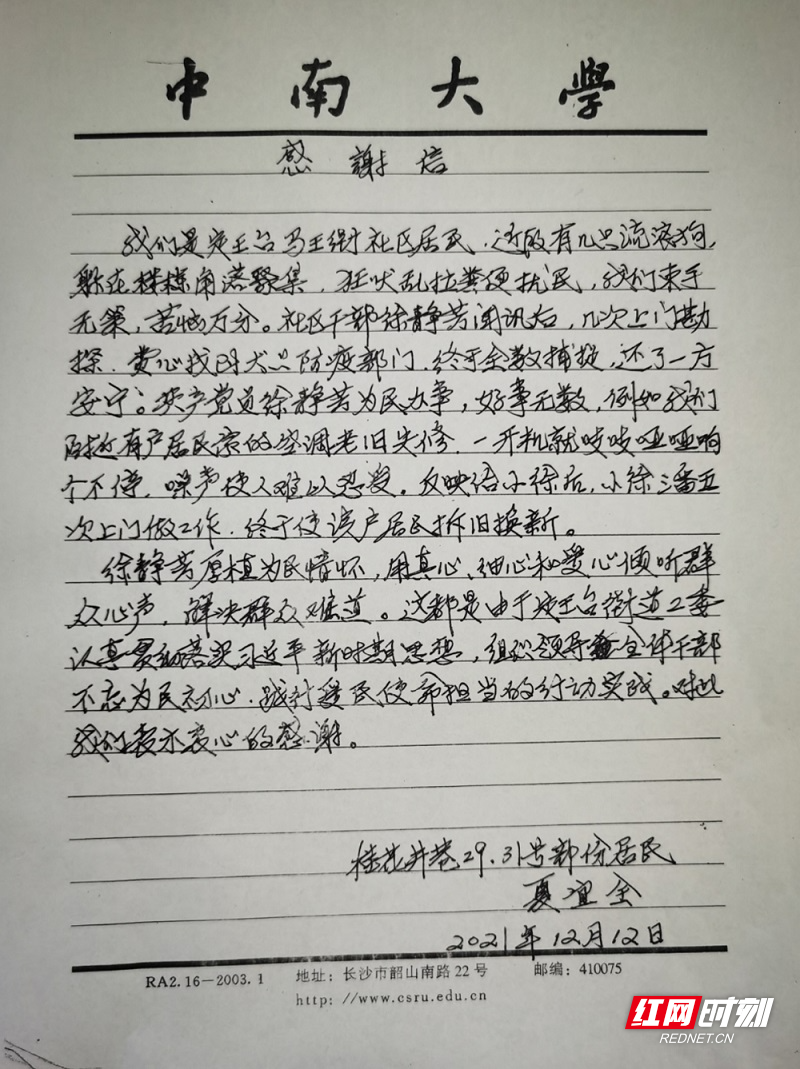 中南大学
感謝信
我们是定王台马王街社区居民，近段有几只流浪狗，
躲在楼栋角落聚集，狂吠乱拉粪便扰民，我们束手
无策，苦恼万分。社区干部徐静芳闻讯后，几次上门勘
探，费心找到犬只防疫部门，终于全数捕捉，还了一方
安宁。共产党员徐静芳为民办事，好事无数，例如我们
附近有户居民家的空调老旧失修，一开机就吱吱哑哑响
个不停，噪声使人难以忍受。反映给小徐后，小徐三番五
次上门做工作，终于使该户居民拆旧换新。
徐静芳厚植为民情怀，用真心、细心和爱心倾听群
众心声，解决群众难道。这都是由于定王台街道工委
认真贯彻落实习近平新时期思想，组织领导全体干部
不忘为民初心，践行爱民使命担当的行动实践。对此
我们表示衷心的感谢。
桂花井巷29.31号部份居民
夏宜全
2021年12月12日
RA2.16-2003.1 地址：长沙市韶山南路22号 邮编：410075
http://www.csru.edu.cn
红网时刻
REDNET.CN